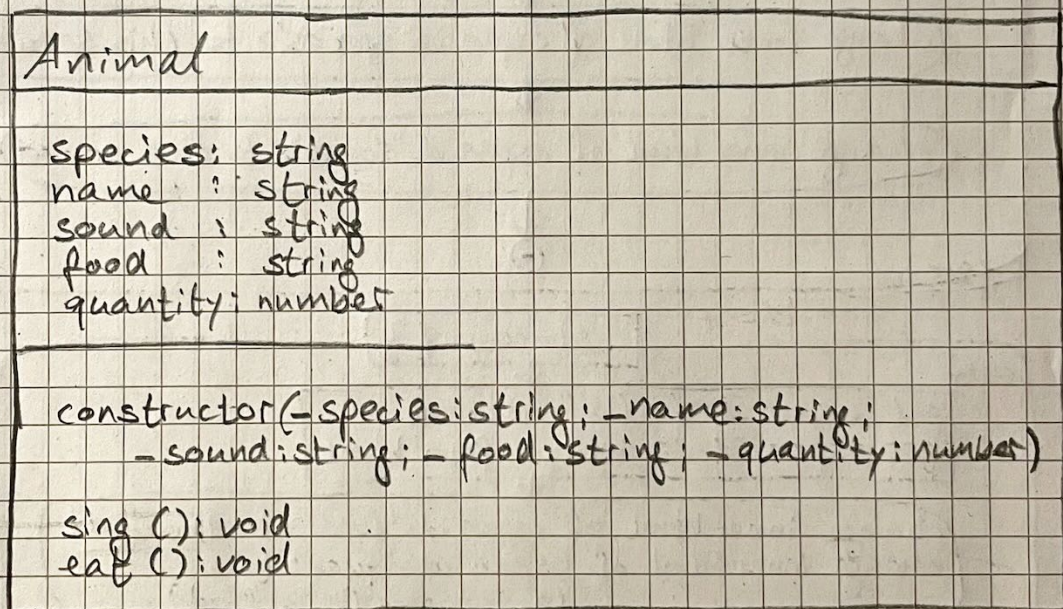 Animal
species: string
name : string
sound : string
food : string
quantity: number
constructor(_species: string; _name: string;
_sound: string; _food: string; _quantity: number)
sing (): void
eat (): void